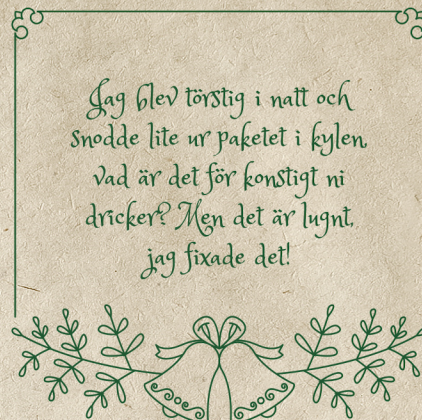 Jag blev törstig i natt och
snodde lite ur paketet i kylen,
vad är det för konstigt ni
dricker? Men det är lugnt,
jag fixade det!